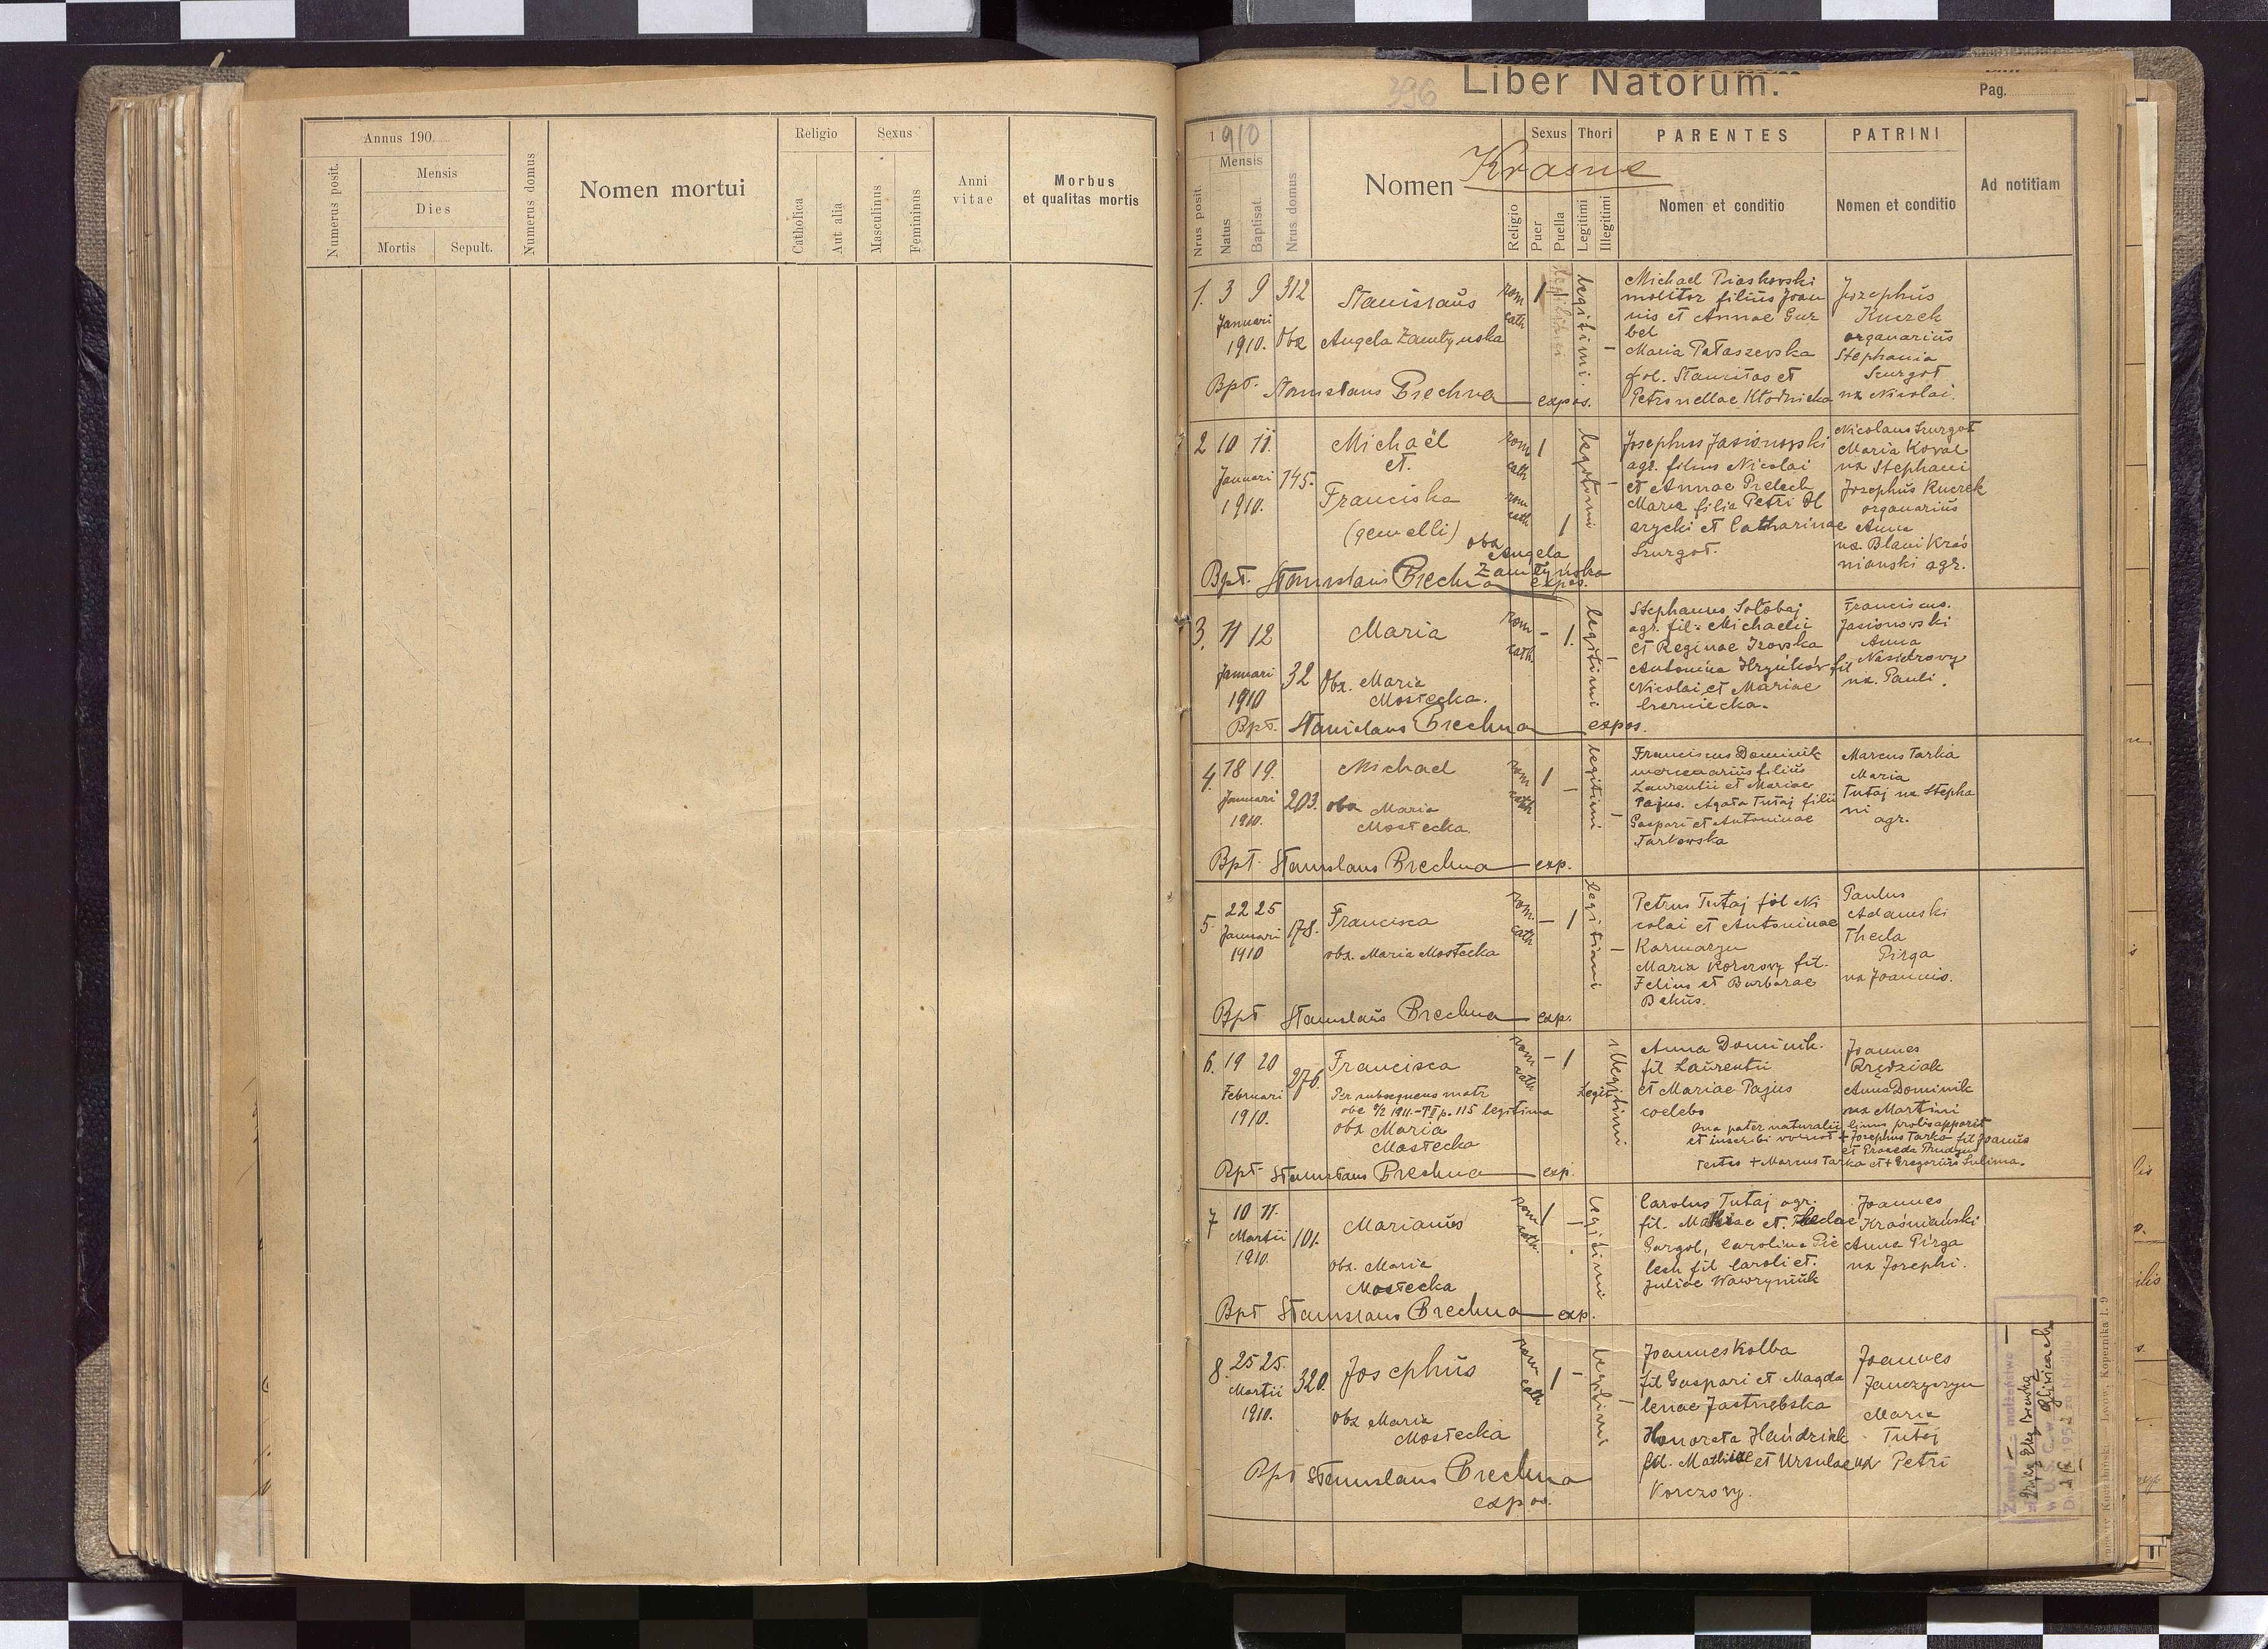 Annus 190
Numerus posit.
Mensis
Dies
Mortis
Sepult.
Numerus domus
Nomen mortui
Religio
Catholica
Aut alia
Sexus
Masculinus
Femininus
Anni
vitae
Morbus
et qualitas mortis
396
Liber Natorum.
Pag.
1910
Mensis
Nrus posit.
Natus
Baptisat.
Nrus domus
Nomen
Krasne
Religio
Sexus
Puer
Puella
Thori
Legitimi
Illegitimi
PARENTES
Nomen et conditio
PATRINI
Nomen et conditio
Ad notitiam
1. 3 9 312
Januari
1910. Obx
Stanislaus
Angela Zamtynska
rom
cath
1
legitimi.
Michael Piaskovski
molitor filius Joan
nis et Annae Gur
bel
Maria Pałaszevska
fil. Stanislas et
Petronellae Kłodnicka
Josephus
Kuczek
organarius
Stephania
Szurgot
ux Nicolai.
Bpt. Stanislaus Brechna expos.
2 10 11.
Januari 145.
1910.
Michaël
et.
Franciska
(gemelli)
obx
Angela
Zamtynska
rom
cath
1
rom
cath
1
legitimi
Josephus Jasionovski
agr. filius Nicolai
et Annae Prelech
Maria filia Petri H
arychi et Catharinae
Szurgot.
Nicolaus Szurgot
Maria Koval
ux Stephani
Josephus Kuczek
organarius
Anna
ux. Blani Kraś
nianski agr.
Bpt. Stanislaus Brechna expos.
3. 11 12
Januari 32
1910
Maria
Obx. Maria
Mostecka.
rom
cath.
- 1.
legitimi
Stephanus Sołobaj
agr. fil: Michaelii
et Reginae Izovska
Antonina Hryńkóv fil
Nicolai et Mariae
Czerniecka.
Franciscus.
Jasionovski
Anna
ux. Pauli.
Bpt. Stanislaus Brechna expos.
4. 18 19.
Januari 203.
1910.
Michael
obx Maria
Mostecka.
rom
cath
1
legitimi
Franciscus Dominik
mercenarius filius
Laurentii et Mariae
Pajus. Agata Tutaj filii
Gaspari et Antoninae
Tarkowska
Marcus Tarka
Maria
Tutaj ux Stepha
ni
agr.
Bpt Stanislaus Brechna exp.
5 22 25
Januari 178.
1910
Francisca
obx. Maria Mostecka
rom.
cath
- 1
legitimi
Petrus Tutaj fil Ni
colai et Antoninae
Karmaryn
Maria Korczovy fil.
Felius et Barbarae
Bekus.
Paulus
Adamski
Thecla
Pirga
ux Joannis.
Bpt Stanislaus Brechna exp.
6. 19 20
Februari 276.
1910.
Francisca
Per subsequens matr
obx Maria
Mostecka
rom
cath
- 1
illegitimi
Legit
Anna Dominik.
fil Laurentii
et Mariae Pajus
coelebs
Joannes
Kędziak
Anna Dominik
ux Martini
Testes + Marcus Tarka et + Gregorius Sulima.
Bpt Stanislaus Brechna exp.
7 10 11.
Martii 101.
1910.
Marianus
obx. Maria
Mostecka
rom
cath.
1
legitimi
Carolus Tutaj agr.
fil. Mathiae et. Theclae
Gargol, Carolina Pie
lech fil Caroli et.
Juliae Wawryniuk
Joannes
Kraśniański
Anna Pirga
ux Josephi.
Bpt Stanislaus Brechna exp.
8. 25 25.
Martii 320.
1910.
Josephus
obx Maria
Mostecka
rom
cath
1 -
legitimi
Joannes Kolba
fil Gaspari et Magda
lenae Jastrzebska
Honorata Handziak
fil. Mathiae et Ursulae
Korczovy.
Joannes
Janczyszyn
Maria
Tutaj
ux Petri
Bpt Stanislaus Brechna
expos.
Lwów, Kopernika l. 9